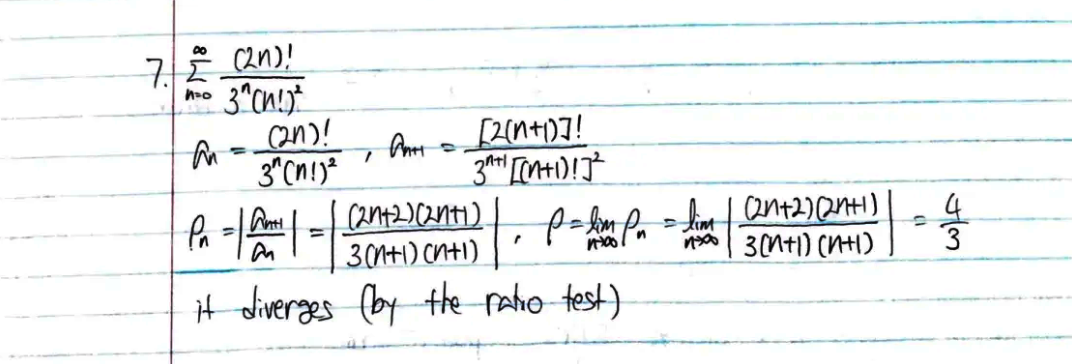 7. $\sum_{n=0}^{\infty} \frac{(2n)!}{3^n (n!)^2}$
$a_n = \frac{(2n)!}{3^n (n!)^2}$ , $a_{n+1} = \frac{[2(n+1)]!}{3^{n+1} [(n+1)!]^2}$
$\rho_n = \left| \frac{a_{n+1}}{a_n} \right| = \left| \frac{(2n+2)(2n+1)}{3(n+1)(n+1)} \right|$ , $\rho = \lim_{n \to \infty} \rho_n = \lim_{n \to \infty} \left| \frac{(2n+2)(2n+1)}{3(n+1)(n+1)} \right| = \frac{4}{3}$
it diverges (by the ratio test)